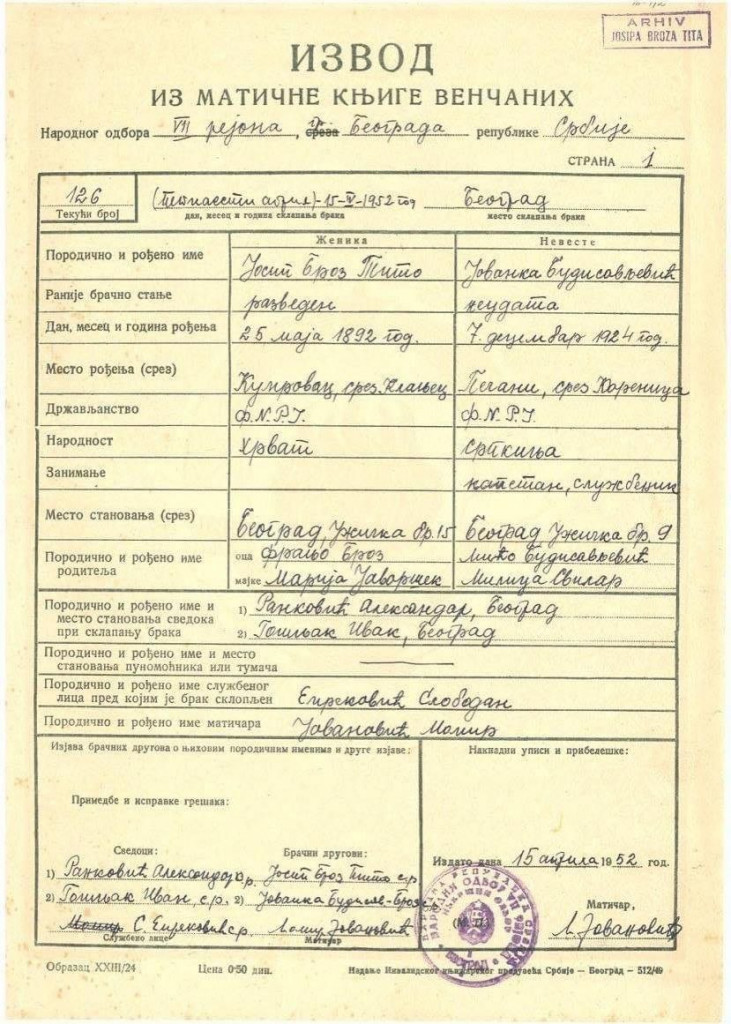 ARHIV
JOSIPA BROZA TITA
ИЗВОД
ИЗ МАТИЧНЕ КЊИГЕ ВЕНЧАНИХ
Народног одбора VII рејона, среза Београда републике Србије
СТРАНА 1
126 15-IV-1952 год Београд
Текући број дан, месец и година склапања брака место склапања брака
Женика Невесте
Породично и рођено име Јосип Броз Тито Јованка Будисављевић
Раније брачно стање разведен неудата
Дан, месец и година рођења 25 маја 1892 год. 7. децембар 1924 год.
Место рођења (срез) Купровац, срез Клањец Печани, срез Кореница
Држављанство Ф.N.P.J. Ф.N.P.J.
Народност Хрват Српкиња
Занимање капетан, службеник
Место становања (срез) Београд, Ужичка бр. 15 Београд Ужичка бр. 9
Породично и рођено име родитеља оца Фрањо Броз Мићо Будисављевић
мајке Марија Јаворшек Милица Свилар
Породично и рођено име и 1) Ранковић Александар, Београд
место становања сведока
при склапању брака 2) Гошњак Иван, Београд
Породично и рођено име и место
становања пуномоћника или тумача
Породично и рођено име службеног
лица пред којим је брак склопљен Слободан
Породично и рођено име матичара Јовановић Момир
Изјава брачних другова о њиховим породичним именима и друге изјаве: Накнадни уписи и прибелешке:
Примедбе и исправке грешака:
Сведоци: Брачни другови:
1) Ранковић Александар Јосип Броз Тито с.р.
2) Гошњак Иван, с.р. 2) Јованка Будисав-Броз
Момир С. с.р. Момир Јовановић
Службено лице Матичар
Издато дана 15 априла 1952 год.
(М. П.) Матичар,
М. Јовановић
НАРОДНИ ОДБОР VII РЕЈОНА
БЕОГРАД
Образац XXIII/24 Цена 0·50 дин. Издање Инвалидског књижарског предузећа Србије — Београд - 512/49